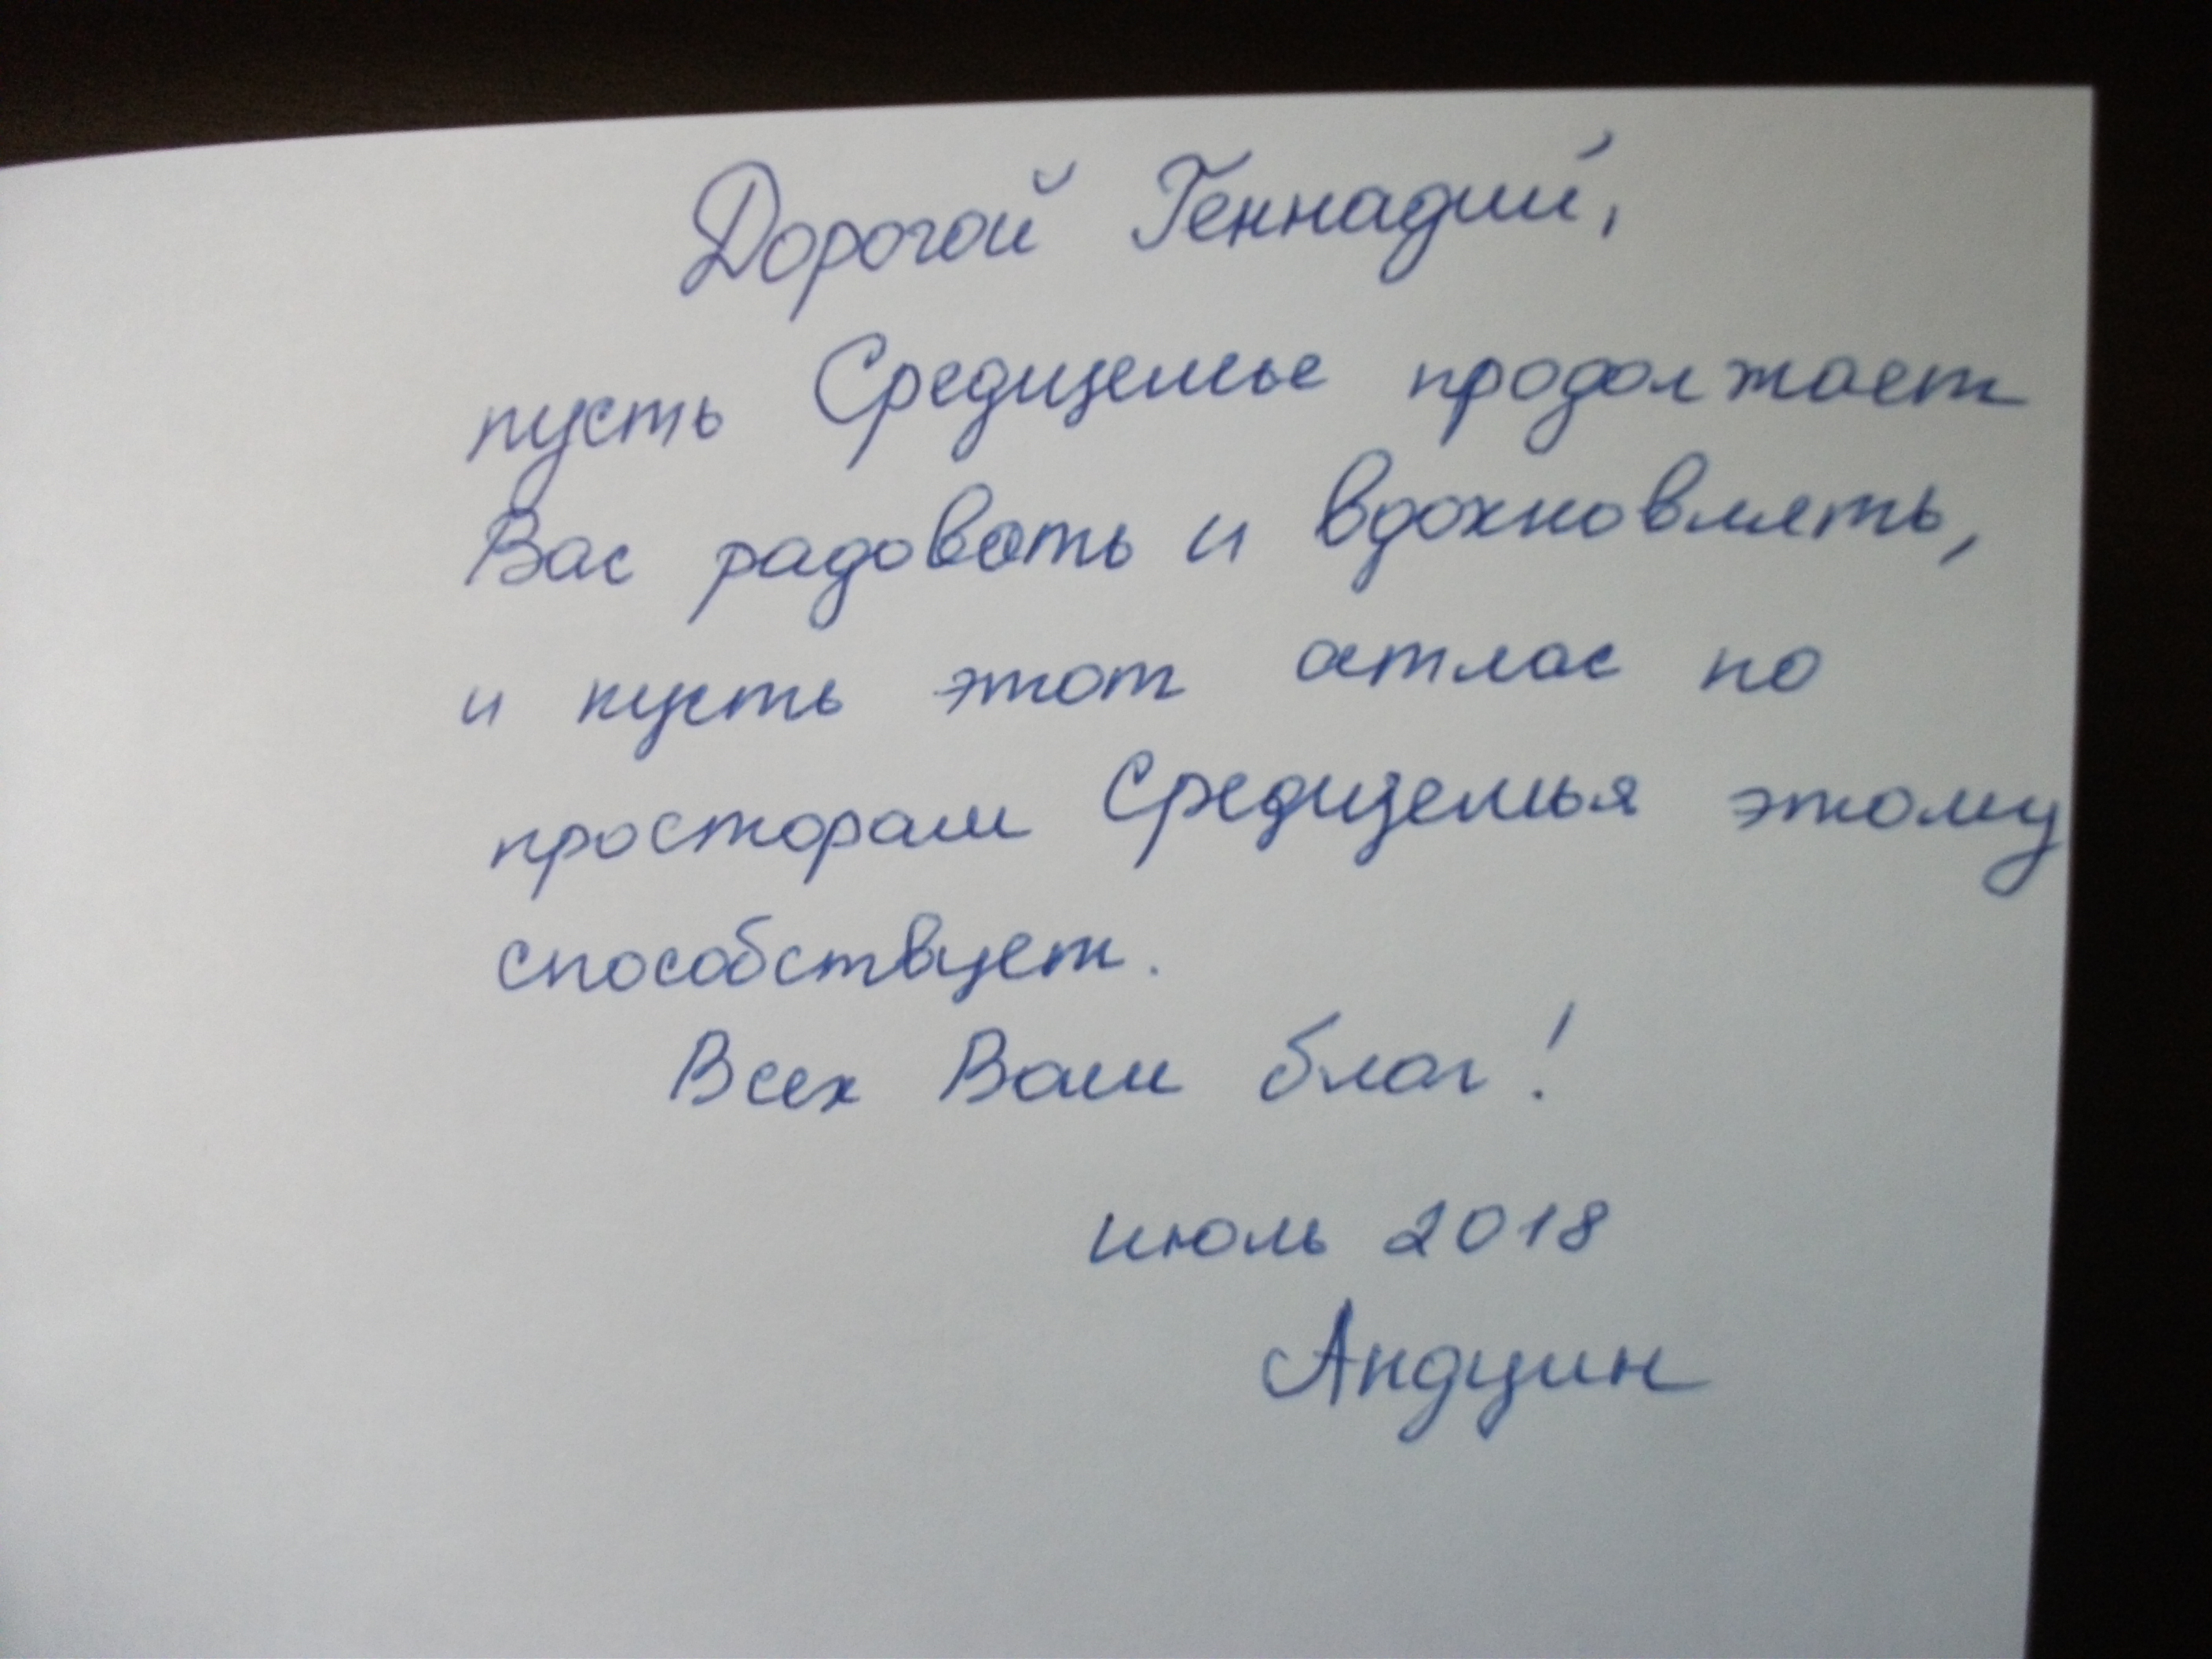 Дорогой Геннадий,
пусть Средиземье продолжает
Вас радовать и вдохновлять,
и пусть этот атлас по
просторам Средиземья этому
способствует.
Всех Вам благ!
июль 2018
Андуин